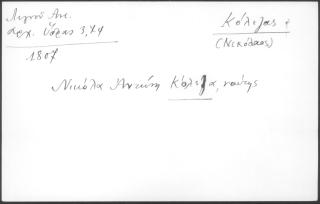 Λιγνοῦ Ἀντ.
ἀρχ. Ὕδρας 3,74
1807
Κόλεζας
(Νικόλαος)
Νικόλα Ἀντώνη Κόλεζα, ναύτης